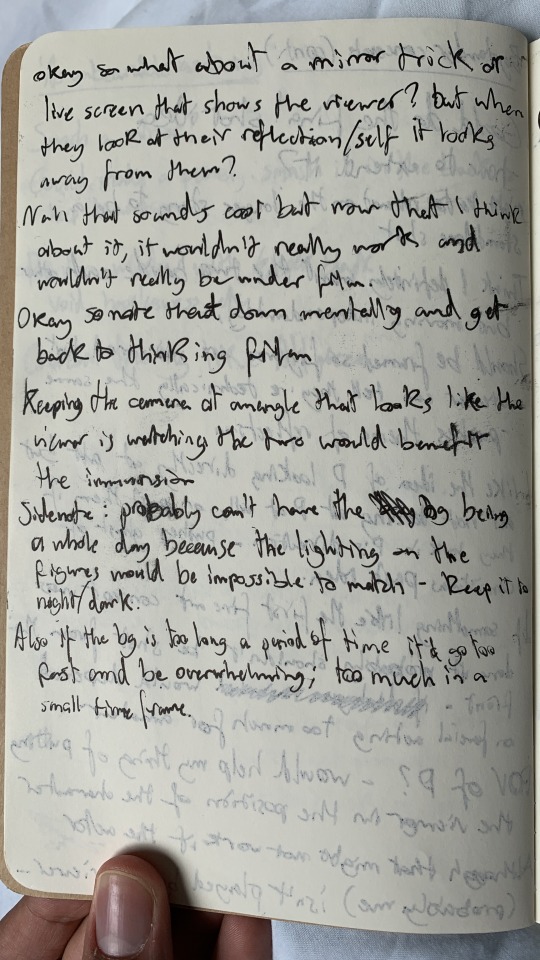 okay so what about a mirror trick or
live screen that shows the viewer? but when
they look at their reflection/self it looks
away from them?
Nah that sounds cool but now that I think
about it, it wouldn't really work and
wouldn't really be under film.
Okay so note that down mentally and get
back to thinking film
Keeping the camera at an angle that looks like the
viewer is watching the two would benefit
the immersion
Sidenote: probably can't have the bg being
a whole day because the lighting on the
figures would be impossible to match - Keep it to
night/dark.
Also if the bg is too long a period of time it'd go too
fast and be overwhelming, too much in a
small time frame.